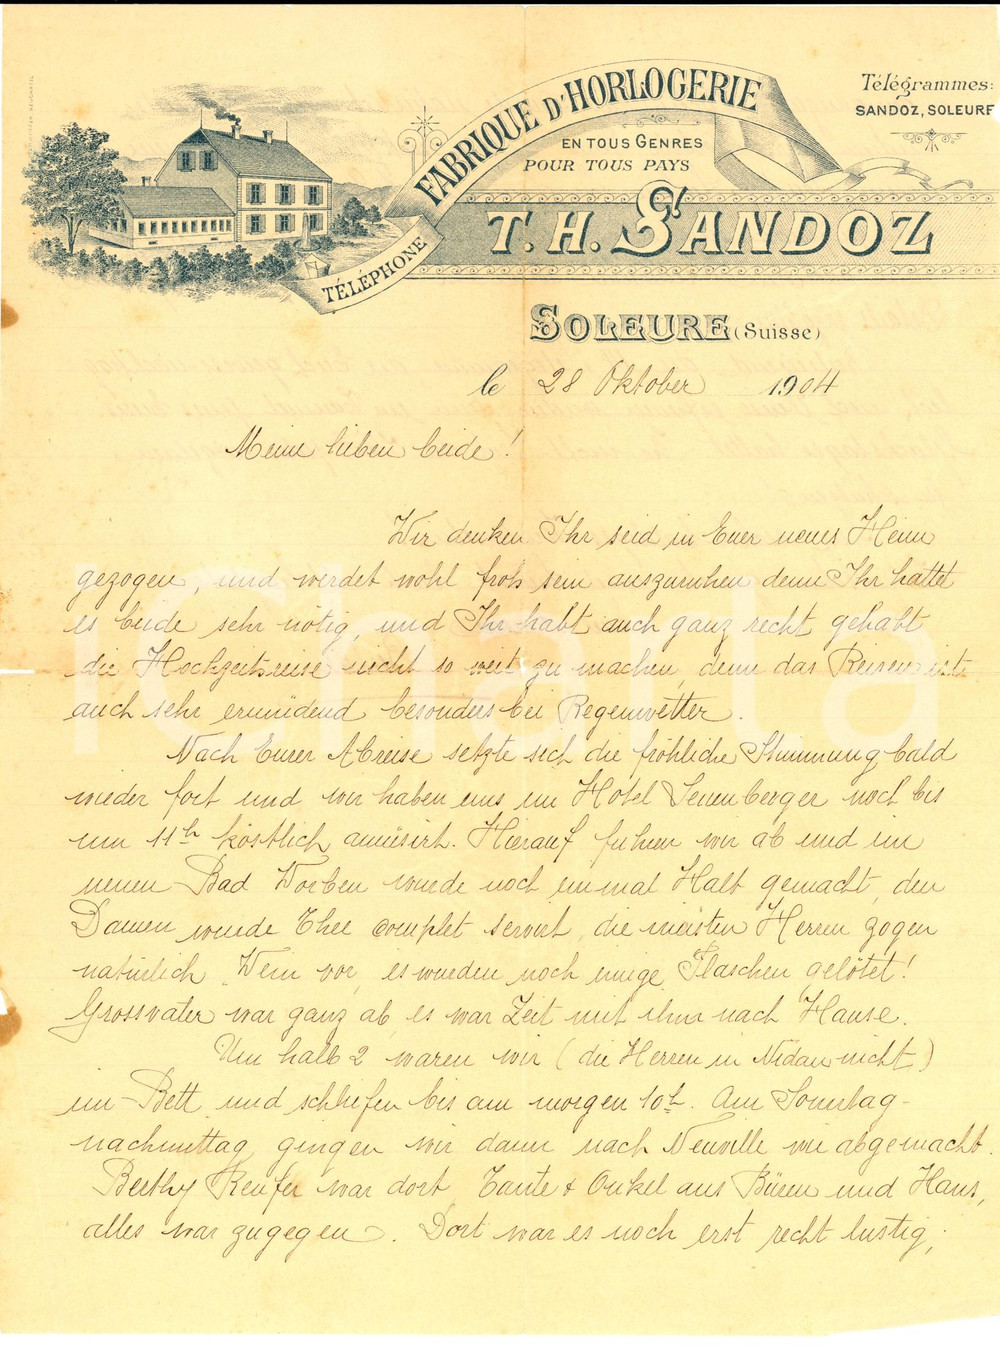 Télégrammes:
SANDOZ, SOLEURE
FABRIQUE D'HORLOGERIE
EN TOUS GENRES
POUR TOUS PAYS
T. H. SANDOZ
TÉLÉPHONE
SOLEURE (Suisse)
le 28 Oktober 1904
Meine lieben beide!
Wir denken Ihr seid in Euer neues Heim
gezogen, und werdet wohl froh sein auszuruhen denn Ihr hattet
es beide sehr nötig, und Ihr habt auch ganz recht gehabt
die Hochzeitsreise nicht so weit zu machen, denn das Reisen ist
auch sehr ermüdend besonders bei Regenwetter.
Nach Eurer Abreise setzte sich die fröhliche Stimmung bald
wieder fort und wir haben uns im Hôtel Leuenberger noch bis
um 11h köstlich amüsirt. Hierauf fuhren wir ab und im
neuen Bad Worben wurde noch einmal Halt gemacht, den
Damen wurde Thee complet servirt, die meisten Herren zogen
natürlich Wein vor, es wurden noch einige Flaschen gelötet!
Grossvater war ganz ab, es war Zeit mit ihm nach Hause.
Um halb 2 waren wir (die Herren in Nidau nicht)
im Bett und schliefen bis am morgen 10h. Am Sonntag-
nachmittag gingen wir dann nach Neuville wie abgemacht.
Berthy Renfer war dort, Tante & Onkel aus Büren und Hans,
alles war zugegen. Dort war es noch erst recht lustig,